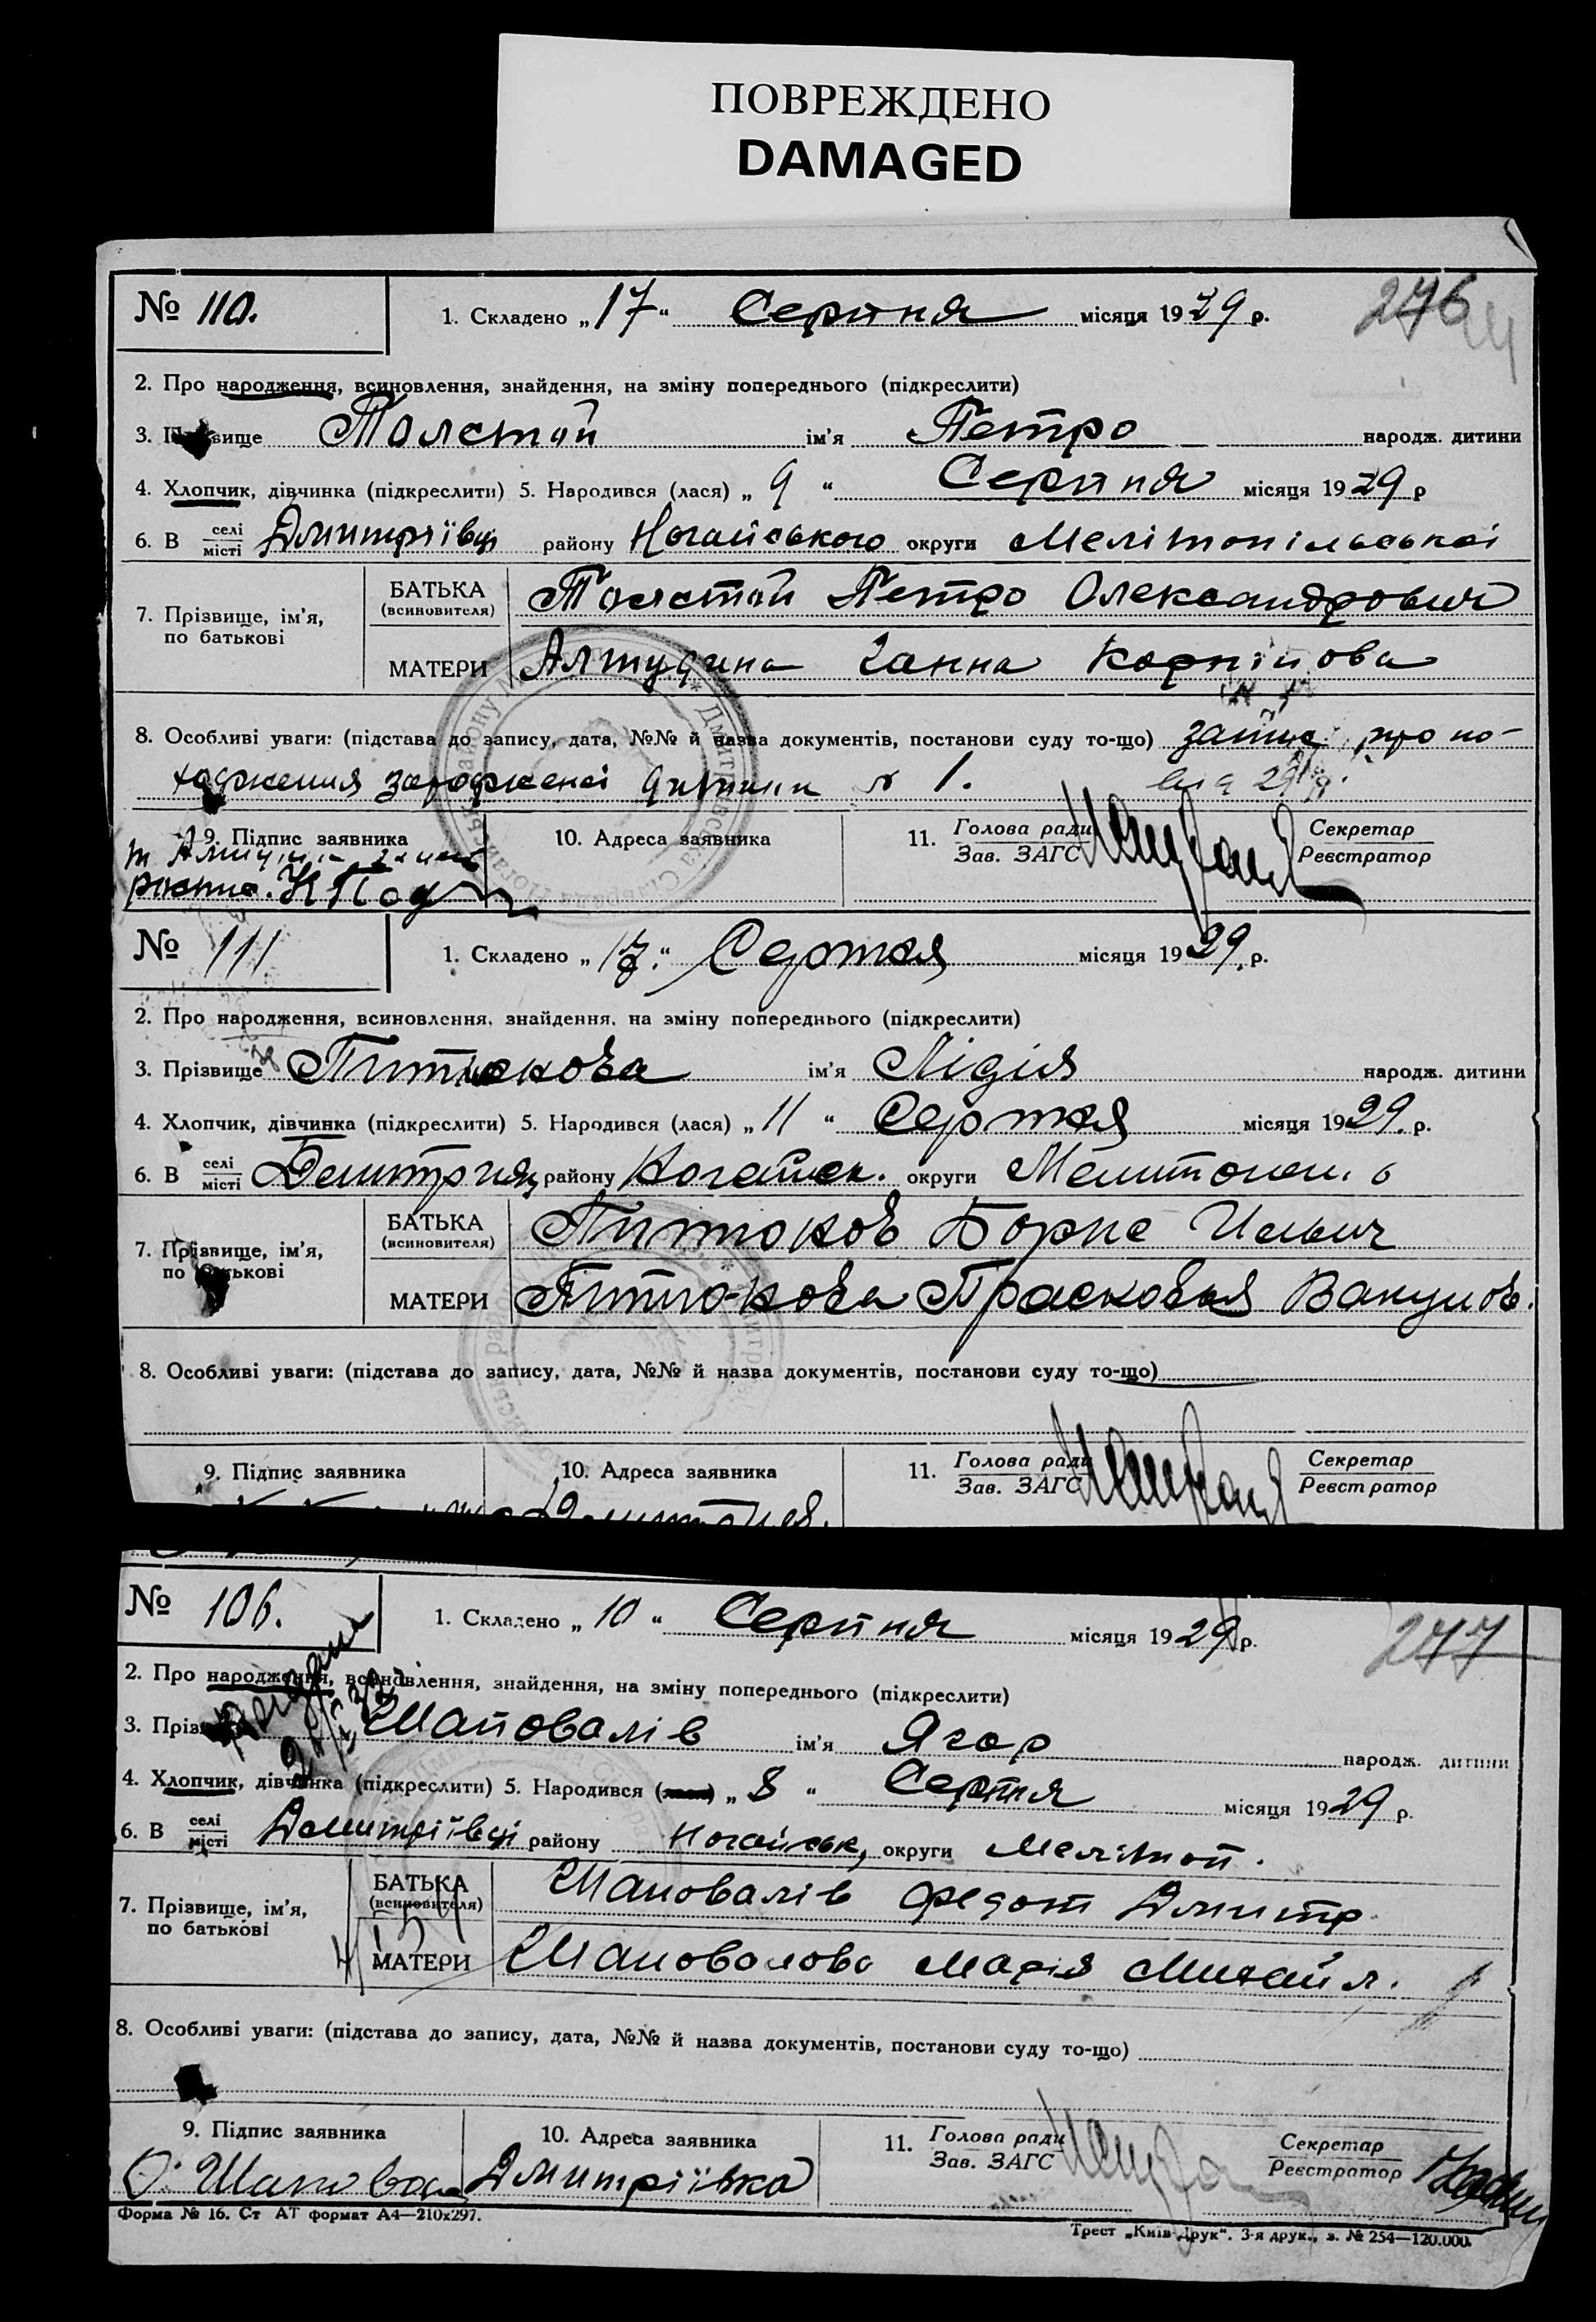 ПОВРЕЖДЕНО
DAMAGED
№ 110.
1. Складено „17“ Серпня місяця 1929 р.
276
2. Про народження, всиновлення, знайдення, на зміну попереднього (підкреслити)
3. Прізвище Толстой ім'я Петро народж. дитини
4. Хлопчик, дівчинка (підкреслити) 5. Народився (лася) „9“ Серпня місяця 1929 р
6. В селі місті Дмитріївці району Ногайського округи Мелітопільської
7. Прізвище, ім'я, по батькові
БАТЬКА (всиновителя) Толстой Петро Олександрович
МАТЕРИ Алтудина Ганна
8. Особливі уваги: (підстава до запису, дата, №№ й назва документів, постанови суду то-що) запис про по-
ходження зародженої дитини № 1.
9. Підпис заявника
10. Адреса заявника
11. Голова ради Зав. ЗАГС
Секретар Реєстратор
№ 111
1. Складено „17.“ Серпня місяця 1929. р.
2. Про народження, всиновлення, знайдення, на зміну попереднього (підкреслити)
3. Прізвище Питюкова ім'я Лідія народж. дитини
4. Хлопчик, дівчинка (підкреслити) 5. Народився (лася) „11“ Серпня місяця 1929. р.
6. В селі місті району Ногайск. округи
7. Прізвище, ім'я, по батькові
БАТЬКА (всиновителя) Питюков Борис Ильич
МАТЕРИ Питюкова Прасковья Вакулов.
8. Особливі уваги: (підстава до запису, дата, №№ й назва документів, постанови суду то-що)
9. Підпис заявника
10. Адреса заявника
11. Голова ради Зав. ЗАГС
Секретар Реєстратор
№ 106.
1. Складено „10“ Серпня місяця 1929 р.
277
2. Про народження, всиновлення, знайдення, на зміну попереднього (підкреслити)
3. Прізвище Шаповалів ім'я Ягор народж. дитини
4. Хлопчик, дівчинка (підкреслити) 5. Народився „8“ Серпня місяця 1929 р.
6. В селі місті Дмитріївці району Ногайськ, округи Мелітоп.
7. Прізвище, ім'я, по батькові
БАТЬКА (всиновителя) Шаповалів Федот Дмитр
МАТЕРИ Шаповалова Марія Михайл.
8. Особливі уваги: (підстава до запису, дата, №№ й назва документів, постанови суду то-що)
9. Підпис заявника
10. Адреса заявника
11. Голова ради Зав. ЗАГС
Секретар Реєстратор
Дмитріївка
Форма № 16. Ст АТ формат А4—210х297.
Трест „Київ-Друк“. 3-я друк., з. № 254—120.000.